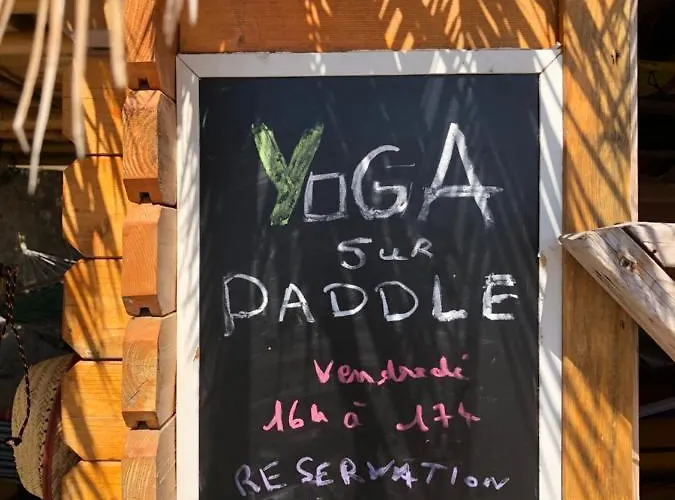 YOGA
SUR
PADDLE
Vendredi
16h à 17h
RESERVATION